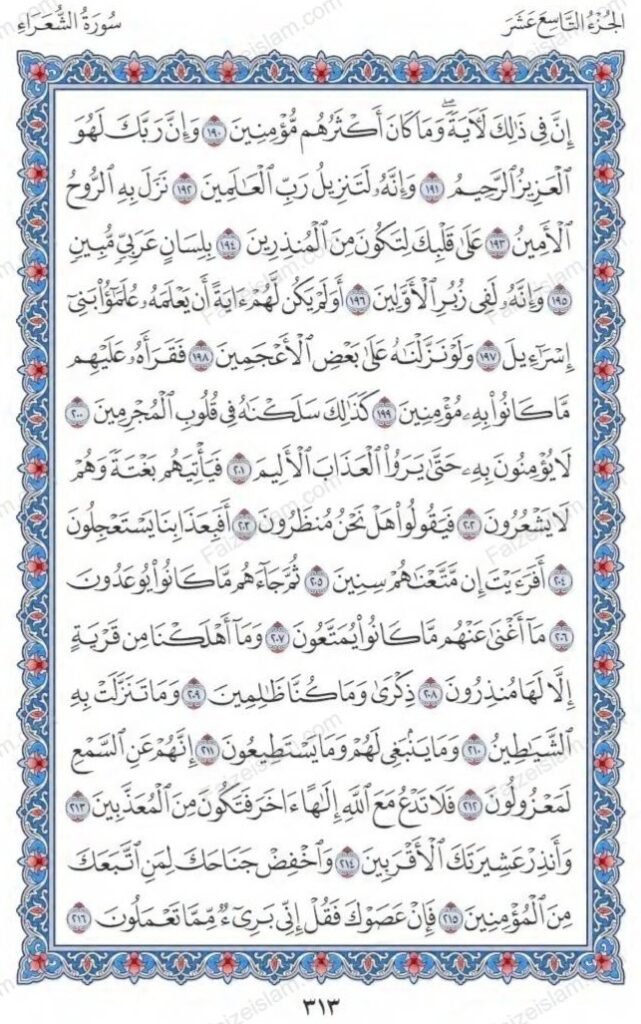 الجُزْءُ التَّاسِعَ عَشَرَ
سُورَةُ الشُّعَرَاءِ
إِنَّ فِى ذَٰلِكَ لَـَٔايَةًۖ وَمَا كَانَ أَكْثَرُهُم مُّؤْمِنِينَ ١٩٠ وَإِنَّ رَبَّكَ لَهُوَ
ٱلْعَزِيزُ ٱلرَّحِيمُ ١٩١ وَإِنَّهُۥ لَتَنزِيلُ رَبِّ ٱلْعَـٰلَمِينَ ١٩٢ نَزَلَ بِهِ ٱلرُّوحُ
ٱلْأَمِينُ ١٩٣ عَلَىٰ قَلْبِكَ لِتَكُونَ مِنَ ٱلْمُنذِرِينَ ١٩٤ بِلِسَانٍ عَرَبِىٍّ مُّبِينٍ
١٩٥ وَإِنَّهُۥ لَفِى زُبُرِ ٱلْأَوَّلِينَ ١٩٦ أَوَلَمْ يَكُن لَّهُمْ ءَايَةً أَن يَعْلَمَهُۥ عُلَمَـٰٓؤُا۟ بَنِىٓ
إِسْرَٰٓءِيلَ ١٩٧ وَلَوْ نَزَّلْنَـٰهُ عَلَىٰ بَعْضِ ٱلْأَعْجَمِينَ ١٩٨ فَقَرَأَهُۥ عَلَيْهِم
مَّا كَانُوا۟ بِهِۦ مُؤْمِنِينَ ١٩٩ كَذَٰلِكَ سَلَكْنَـٰهُ فِى قُلُوبِ ٱلْمُجْرِمِينَ ٢٠٠
لَا يُؤْمِنُونَ بِهِۦ حَتَّىٰ يَرَوُا۟ ٱلْعَذَابَ ٱلْأَلِيمَ ٢٠١ فَيَأْتِيَهُم بَغْتَةً وَهُمْ
لَا يَشْعُرُونَ ٢٠٢ فَيَقُولُوا۟ هَلْ نَحْنُ مُنظَرُونَ ٢٠٣ أَفَبِعَذَابِنَا يَسْتَعْجِلُونَ
٢٠٤ أَفَرَءَيْتَ إِن مَّتَّعْنَـٰهُمْ سِنِينَ ٢٠٥ ثُمَّ جَآءَهُم مَّا كَانُوا۟ يُوعَدُونَ
٢٠٦ مَآ أَغْنَىٰ عَنْهُم مَّا كَانُوا۟ يُمَتَّعُونَ ٢٠٧ وَمَآ أَهْلَكْنَا مِن قَرْيَةٍ
إِلَّا لَهَا مُنذِرُونَ ٢٠٨ ذِكْرَىٰ وَمَا كُنَّا ظَـٰلِمِينَ ٢٠٩ وَمَا تَنَزَّلَتْ بِهِ
ٱلشَّيَـٰطِينُ ٢١٠ وَمَا يَنۢبَغِى لَهُمْ وَمَا يَسْتَطِيعُونَ ٢١١ إِنَّهُمْ عَنِ ٱلسَّمْعِ
لَمَعْزُولُونَ ٢١٢ فَلَا تَدْعُ مَعَ ٱللَّهِ إِلَـٰهًا ءَاخَرَ فَتَكُونَ مِنَ ٱلْمُعَذَّبِينَ ٢١٣
وَأَنذِرْ عَشِيرَتَكَ ٱلْأَقْرَبِينَ ٢١٤ وَٱخْفِضْ جَنَاحَكَ لِمَنِ ٱتَّبَعَكَ
مِنَ ٱلْمُؤْمِنِينَ ٢١٥ فَإِنْ عَصَوْكَ فَقُلْ إِنِّى بَرِىٓءٌ مِّمَّا تَعْمَلُونَ ٢١٦
٣١٣
Faizeislam.com